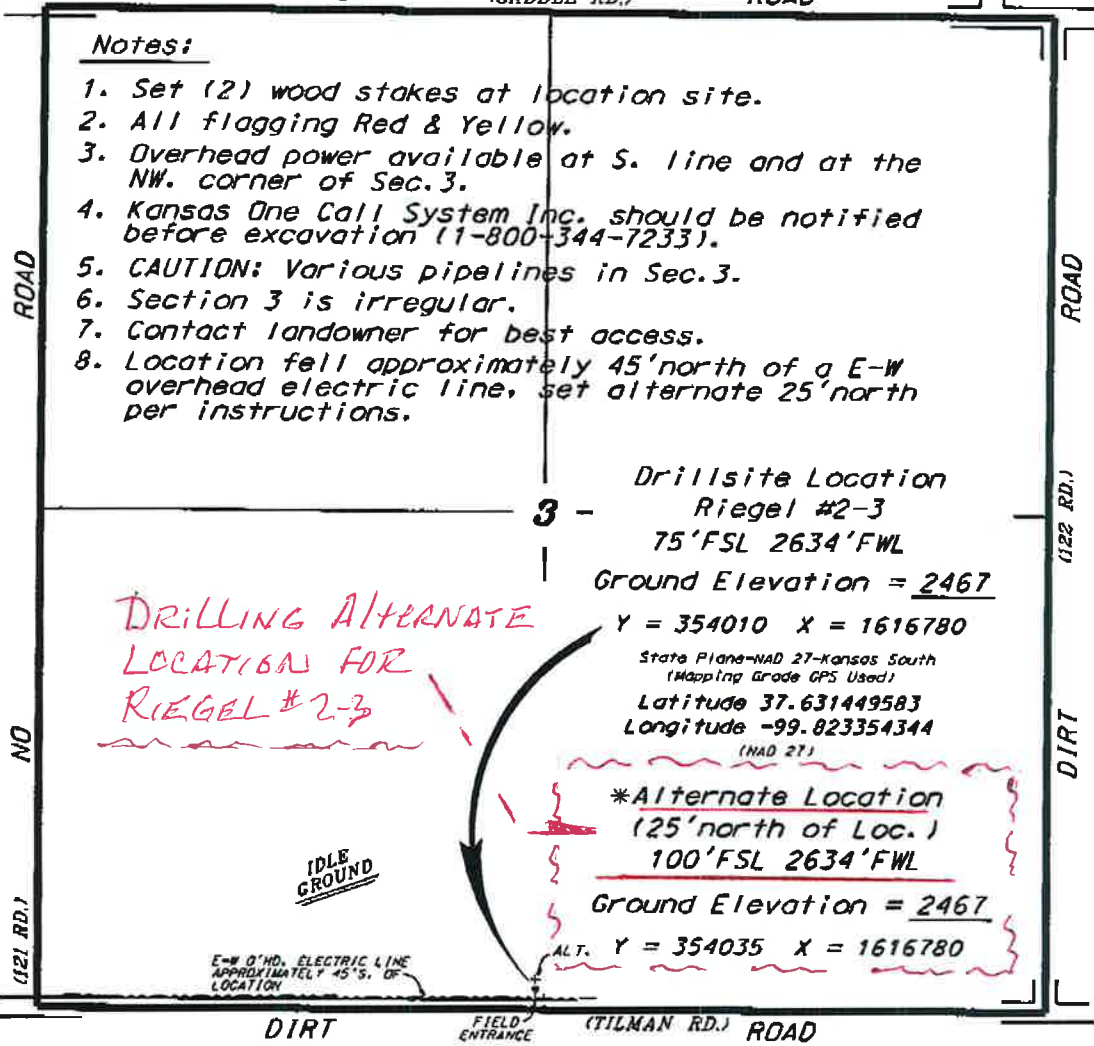 ROAD
Notes:
1. Set (2) wood stakes at location site.
2. All flagging Red & Yellow.
3. Overhead power available at S. line and at the
NW. corner of Sec.3.
4. Kansas One Call System Inc. should be notified
before excavation (1-800-344-7233).
5. CAUTION: Various pipelines in Sec.3.
6. Section 3 is irregular.
7. Contact landowner for best access.
8. Location fell approximately 45'north of a E-W
overhead electric line, set alternate 25'north
per instructions.
ROAD
NO
(121 RD.)
ROAD
(122 RD.)
DIRT
3
Drillsite Location
Riegel #2-3
75'FSL 2634'FWL
Ground Elevation = 2467
Y = 354010 X = 1616780
State Plane-NAD 27-Kansas South
(Mapping Grade GPS Used)
Latitude 37.631449583
Longitude -99.823354344
(NAD 27)
DRILLING ALTERNATE
LOCATION FOR
RIEGEL #2-3
*Alternate Location
(25'north of Loc.)
100'FSL 2634'FWL
Ground Elevation = 2467
ALT. Y = 354035 X = 1616780
IDLE
GROUND
E-W O'HD. ELECTRIC LINE
APPROXIMATELY 45'S. OF
LOCATION
DIRT
FIELD
ENTRANCE
(TILMAN RD.) ROAD